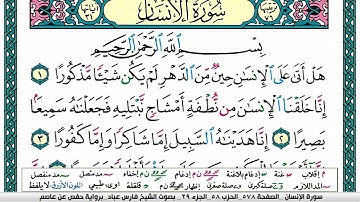 سُورَةُ الْإِنسَانِ
بِسْمِ اللَّهِ الرَّحْمَٰنِ الرَّحِيمِ
هَلْ أَتَىٰ عَلَى الْإِنسَانِ حِينٌ مِّنَ الدَّهْرِ لَمْ يَكُن شَيْئًا مَّذْكُورًا ١
إِنَّا خَلَقْنَا الْإِنسَانَ مِن نُّطْفَةٍ أَمْشَاجٍ نَّبْتَلِيهِ فَجَعَلْنَاهُ سَمِيعًا
بَصِيرًا ٢ إِنَّا هَدَيْنَاهُ السَّبِيلَ إِمَّا شَاكِرًا وَإِمَّا كَفُورًا ٣
سورة الإنسان - الصفحة ٥٧٨ - الجزء ٢٩ - بصوت الشيخ فارس عباد - برواية حفص عن عاصم